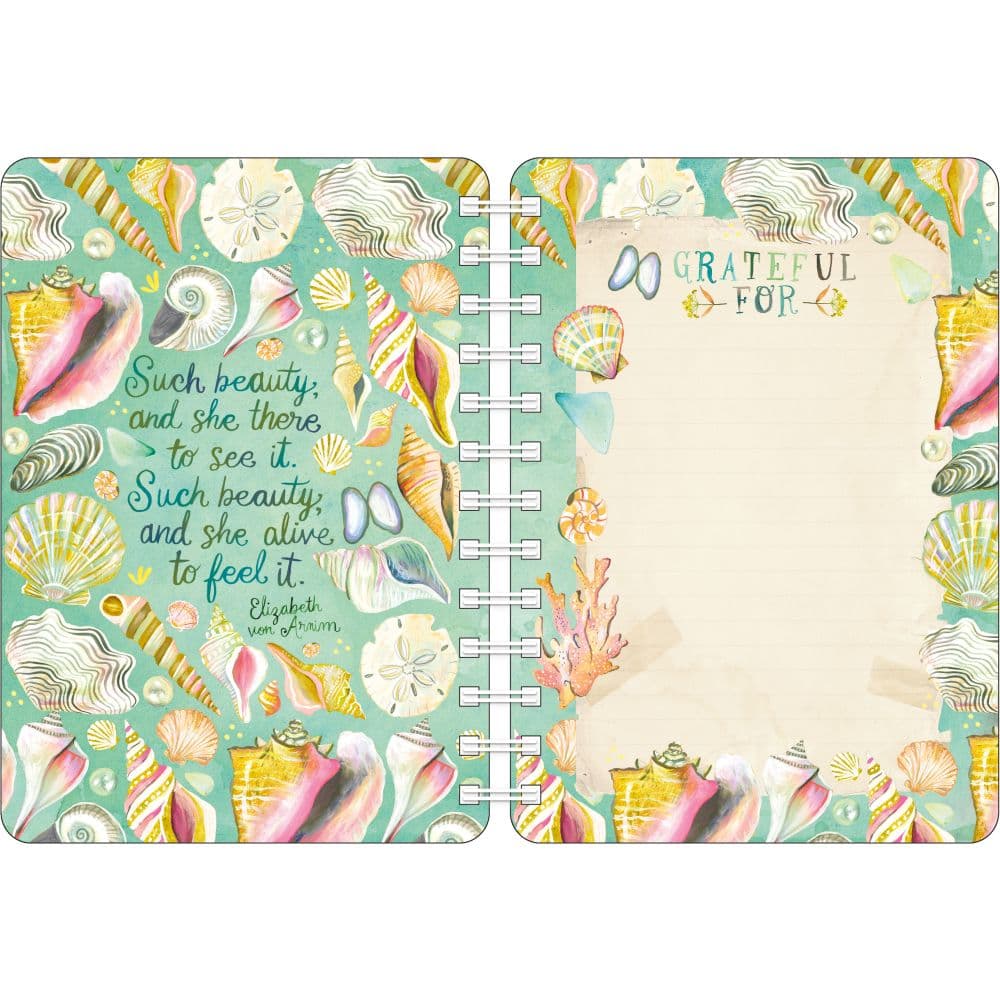 Such beauty,
and she there
to see it.
Such beauty,
and she alive
to feel it.
Elizabeth
von Arnim
GRATEFUL
FOR